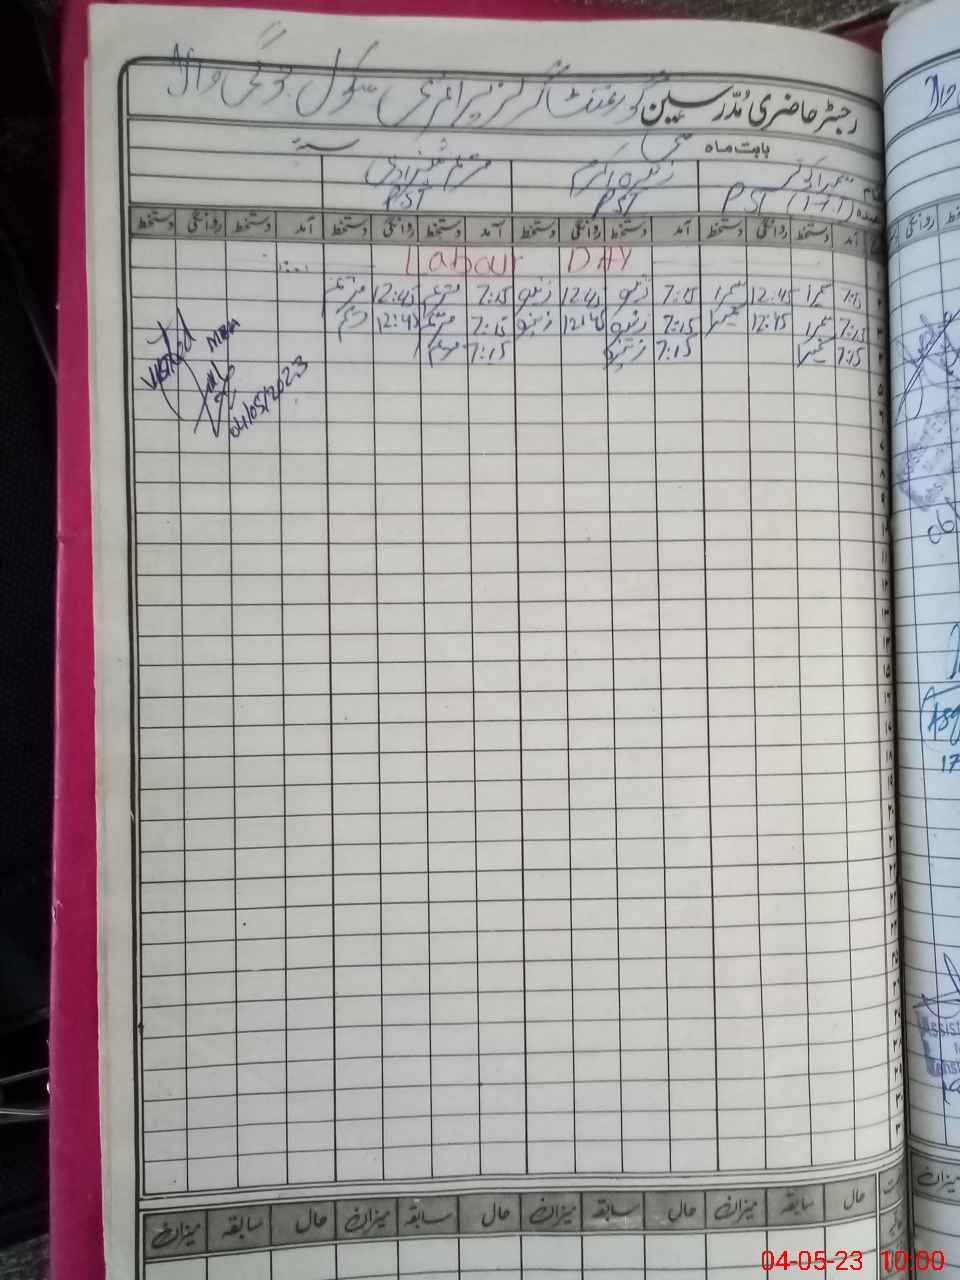 رجسٹر حاضری مدرسین گورنمنٹ گرلز پرائمری سکول جوگی والا
بابت ماہ مئی سنہ
سمیرا کوثر زنیرہ اکرم مریم شہزادی
PST (I-I) PST PST
آمد دستخط روانگی دستخط آمد دستخط روانگی دستخط آمد دستخط روانگی دستخط آمد دستخط روانگی دستخط
Labour DAY
7:15 سمیرا 12:45 سمیرا 7:15 زنیرہ 12:45 زنیرہ 7:15 مریم 12:45 مریم
7:15 سمیرا 12:45 سمیرا 7:15 زنیرہ 12:45 زنیرہ 7:15 مریم 12:45 مریم
7:15 سمیرا 7:15 زنیرہ 7:15 مریم
Visited
MEA
04/05/2023
حال سابقہ میزان حال سابقہ میزان حال سابقہ میزان حال سابقہ میزان
04-05-23 10:00